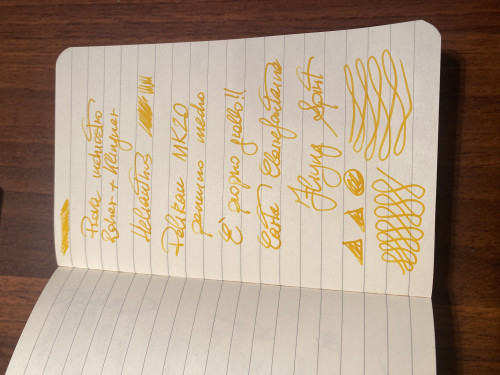 Prova inchiostro
Rohrer + Klingner
Helianthus
Pelikan MK20
pennino medio
È proprio giallo!!
Carta Clairefontaine
Flying Spirit